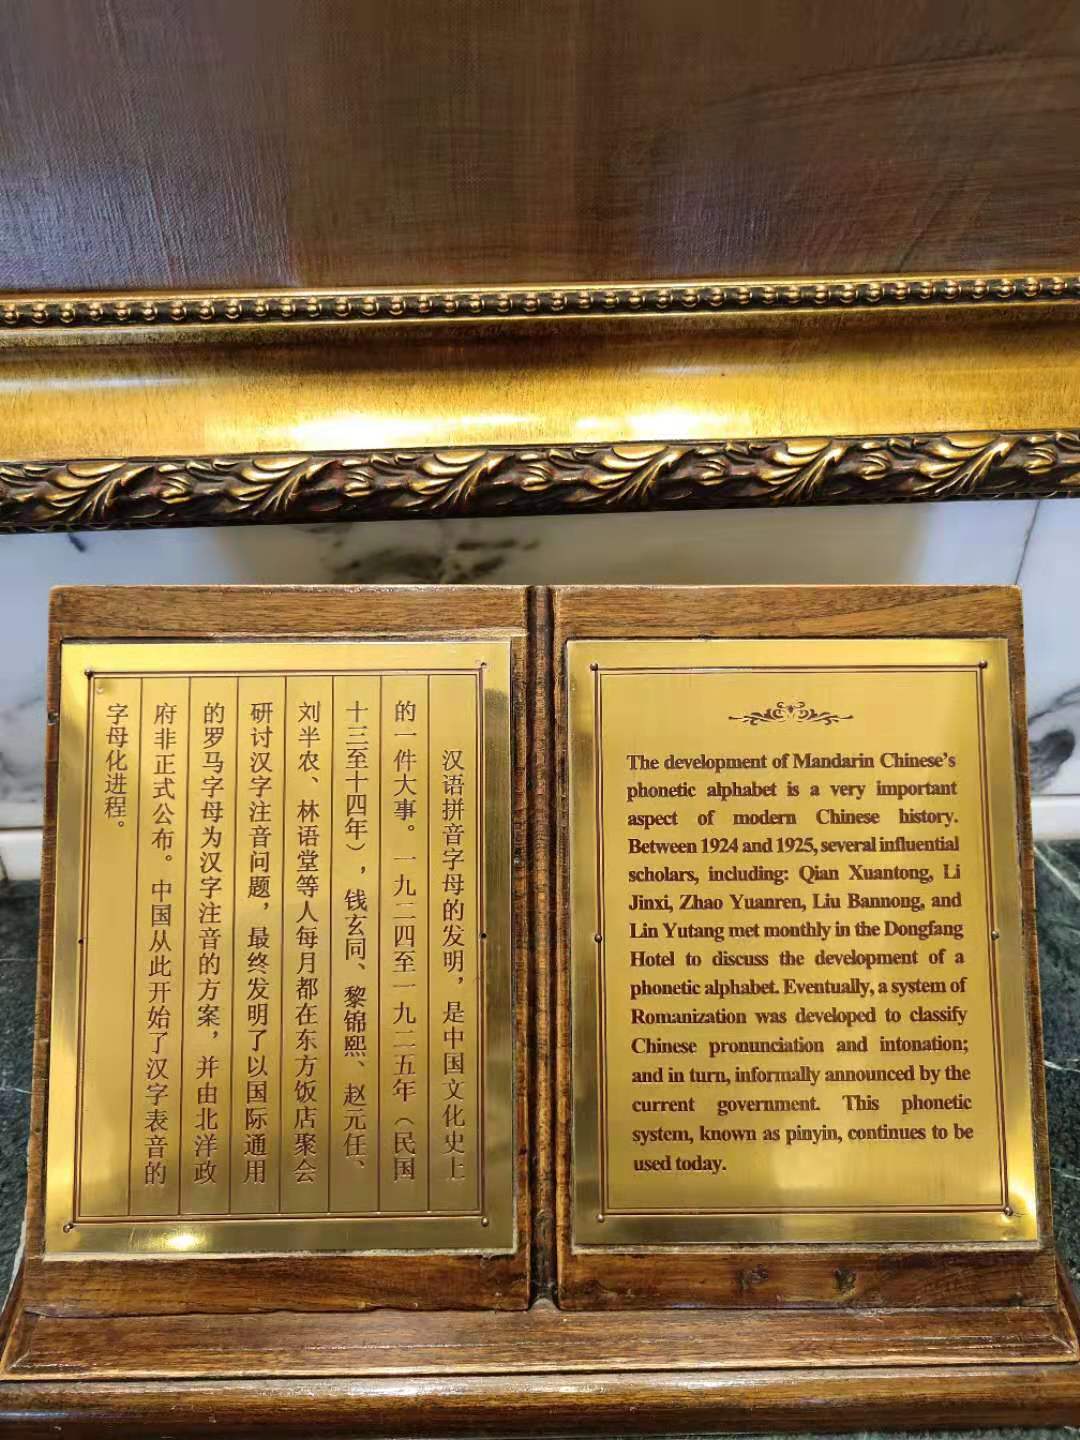 汉语拼音字母的发明，是中国文化史上
的一件大事。一九二四至一九二五年（民国
十三至十四年），钱玄同、黎锦熙、赵元任、
刘半农、林语堂等人每月都在东方饭店聚会
研讨汉字注音问题，最终发明了以国际通用
的罗马字母为汉字注音的方案，并由北洋政
府非正式公布。中国从此开始了汉字表音的
字母化进程。
The development of Mandarin Chinese's
phonetic alphabet is a very important
aspect of modern Chinese history.
Between 1924 and 1925, several influential
scholars, including: Qian Xuantong, Li
Jinxi, Zhao Yuanren, Liu Bannong, and
Lin Yutang met monthly in the Dongfang
Hotel to discuss the development of a
phonetic alphabet. Eventually, a system of
Romanization was developed to classify
Chinese pronunciation and intonation;
and in turn, informally announced by the
current government. This phonetic
system, known as pinyin, continues to be
used today.